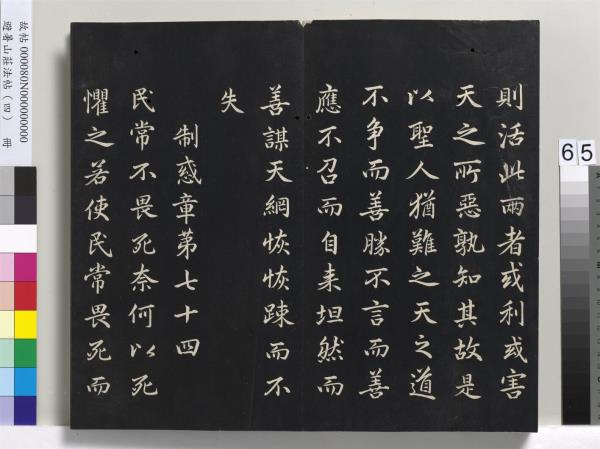 則活此兩者或利或害
天之所惡孰知其故是
以聖人猶難之天之道
不爭而善勝不言而善
應不召而自來坦然而
善謀天網恢恢踈而不
失
制惑章第七十四
民常不畏死奈何以死
懼之若使民常畏死而
故帖 000080N000000000
避暑山莊法帖（四） 冊
65